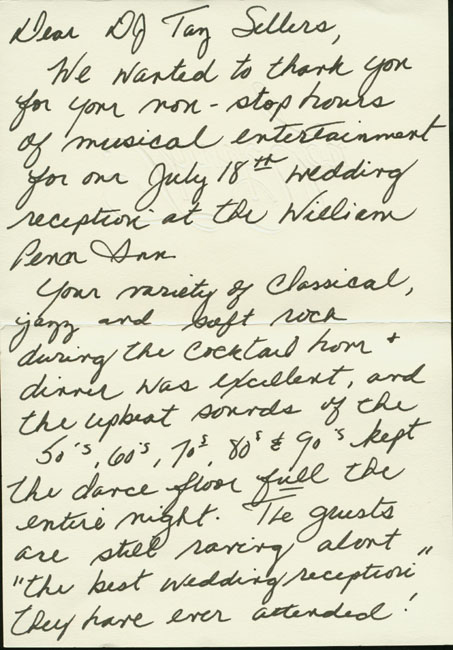 Dear DJ Taz Sellers,
We wanted to thank you
for your non-stop hours
of musical entertainment
for our July 18th wedding
reception at the William
Penn Inn.
Your variety of classical,
jazz and soft rock
during the cocktail hour +
dinner was excellent, and
the upbeat sounds of the
50's, 60's, 70s, 80s & 90's kept
the dance floor full the
entire night. The guests
are still raving about
"the best wedding reception"
they have ever attended!